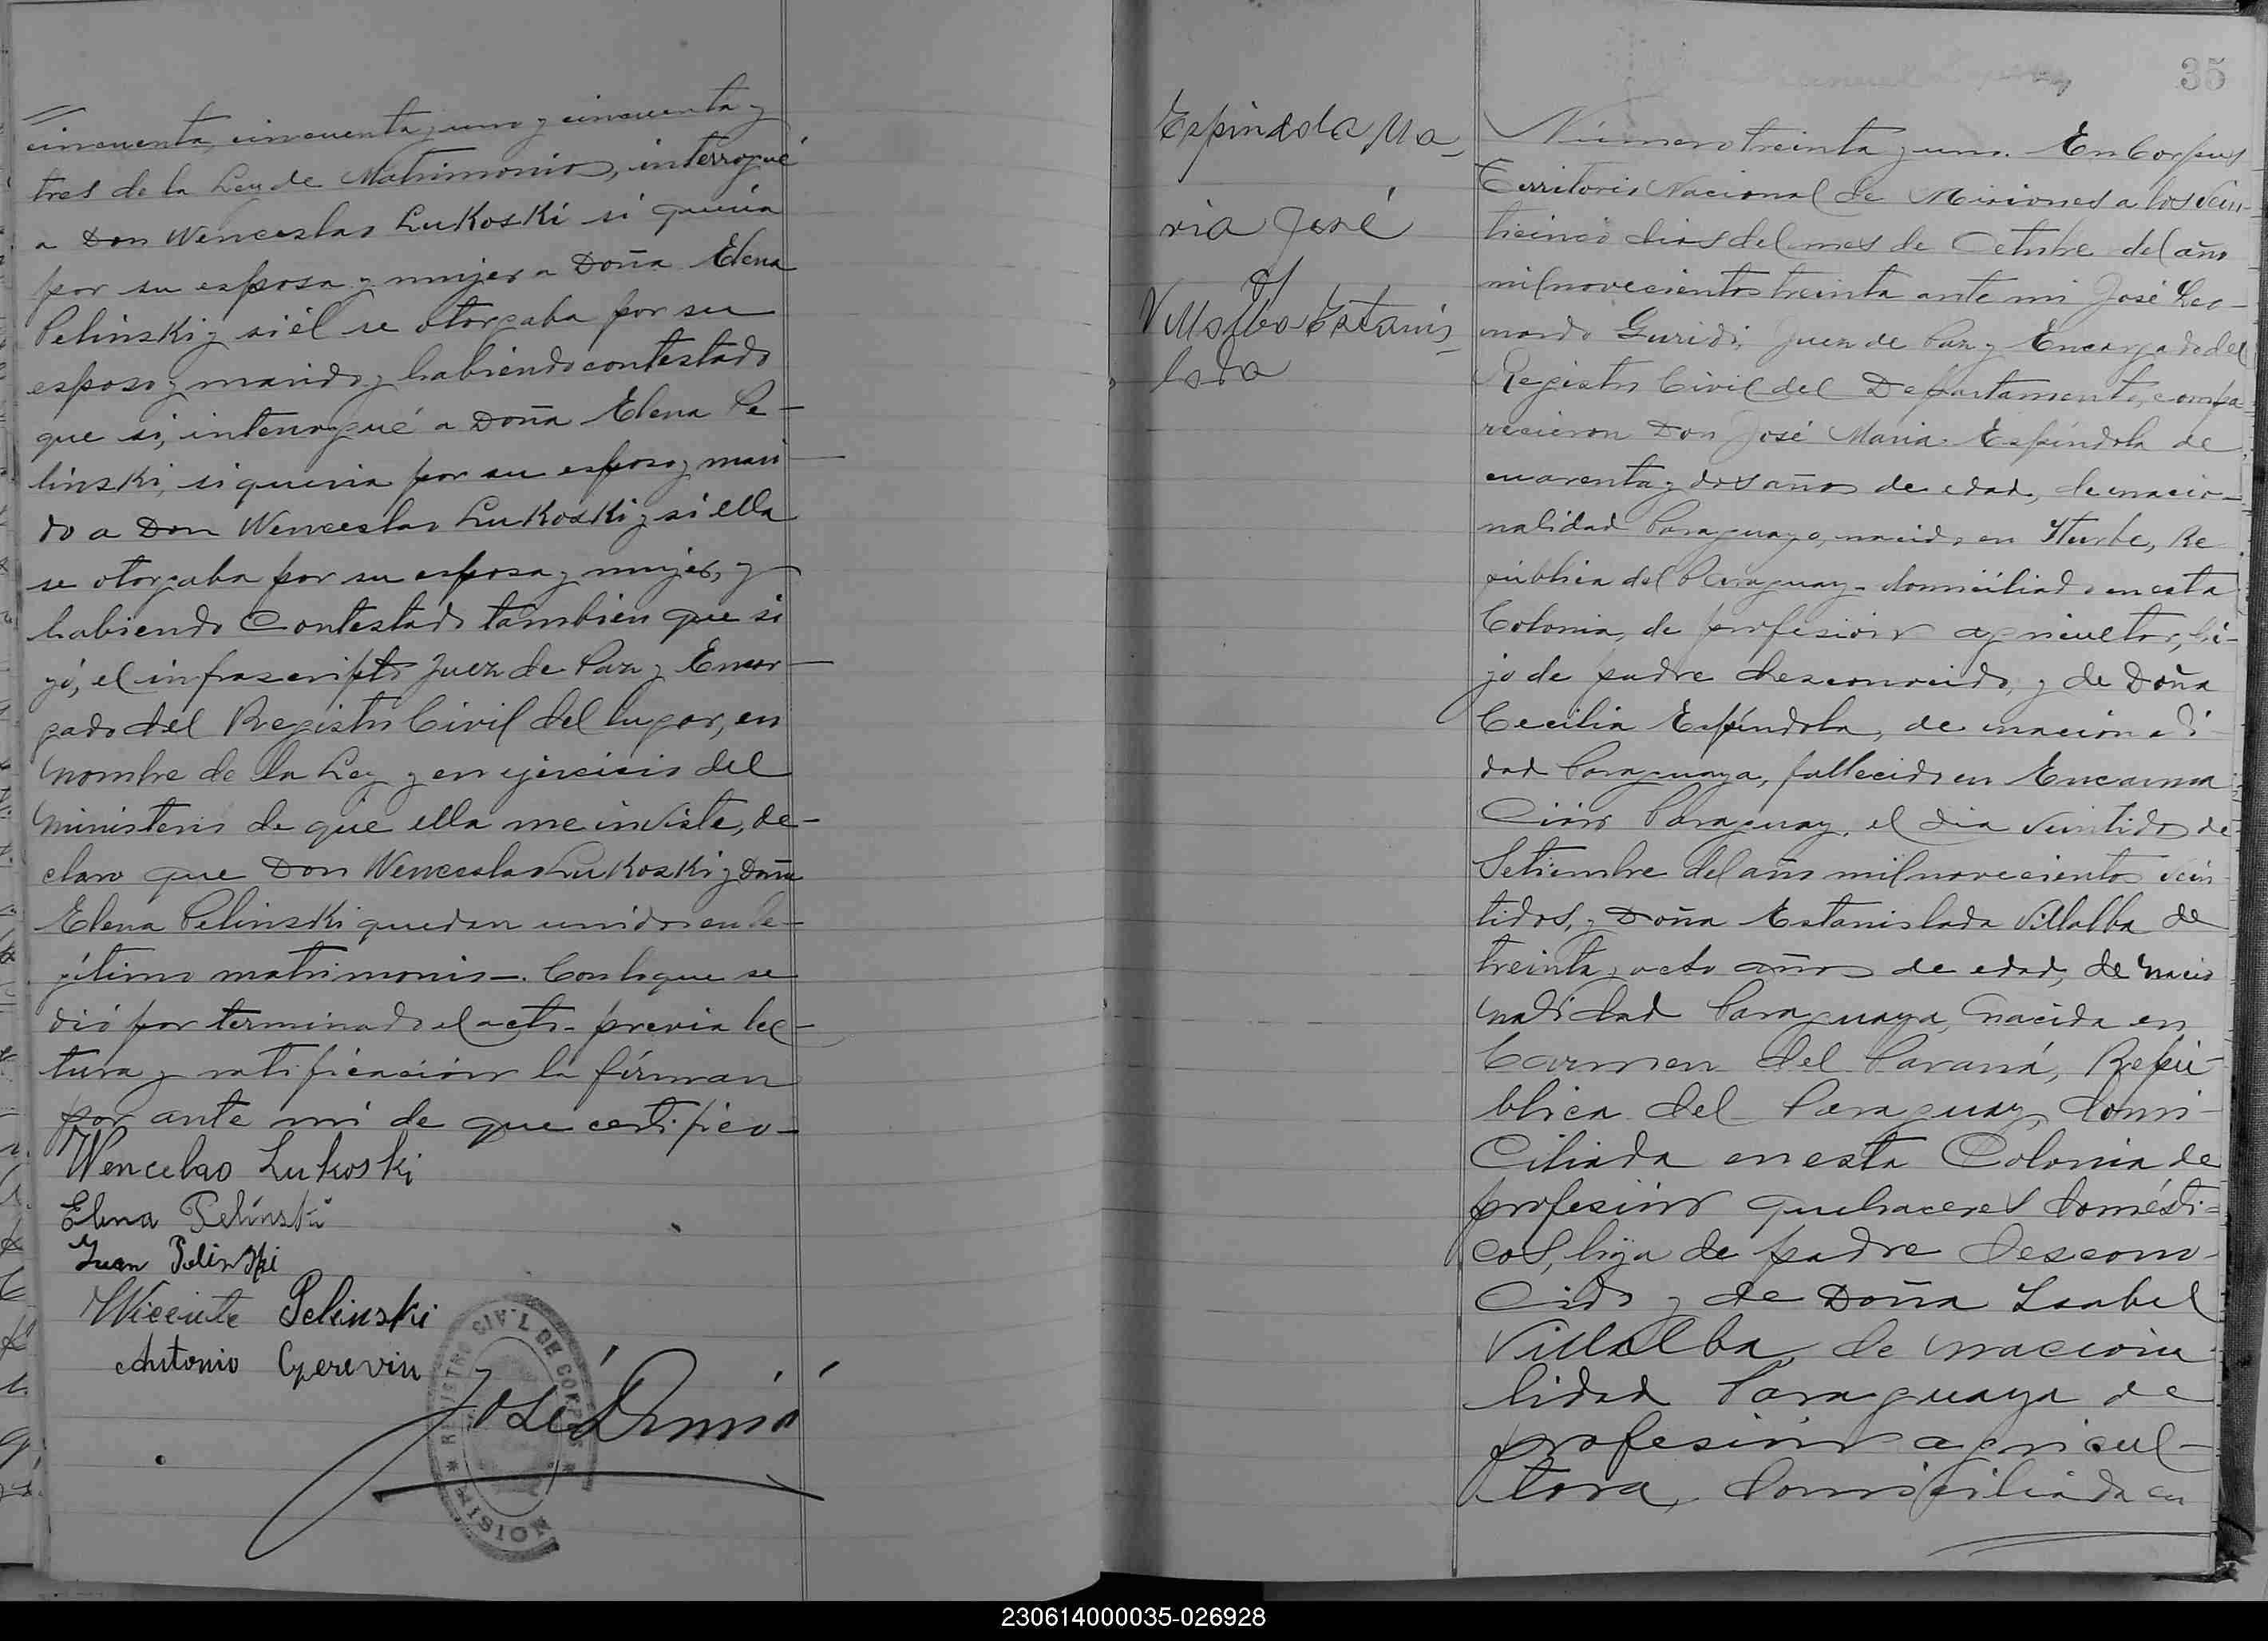 cincuenta, cincuenta y uno y cincuenta y
tres de la Ley de Matrimonio, interrogué
a Don Wenceslao Lukoski si queria
por su esposa y mujer a Doña Elena
Pelinski y si él se otorgaba por su
esposo y marido y habiendo contestado
que si, interrogué a Doña Elena Pe-
linski, si queria por su esposo y mari-
do a Don Wenceslao Lukoski y si ella
se otorgaba por su esposa y mujer, y
habiendo Contestado tambien que si
yó, el infrascripto Juez de Paz y Encar-
gado del Registro Civil del lugar, en
nombre de la Ley y en ejercicio del
ministerio de que ella me inviste, de-
claro que Don Wenceslao Lukoski y Doña
Elena Pelinski quedan unidos en le-
gítimo matrimonio-. Con lo que se
dió por terminado el acto- previa lec-
tura y ratificación la fírman
por ante mi de que certifico-
Wencelao Lukoski
Elena Pelínski
Juan Pelinski
Wicente Pelinski
Antonio
José
REGISTRO CIVIL DE CORPUS
* MISIONES *
35
Espindola Ma-
ria José
y
Villalba Estanis-
lada
Número treinta y uno. En Corpus
Territorio Nacional de Misiones a los vein-
ticinco dias del mes de Octubre del año
mil novecientos treinta ante mi José Leo-
nardo Guridi, Juez de Paz y Encargado del
Registro Civil del Departamento, compa-
recieron Don José Maria Espíndola de
cuarenta y dos años de edad, de nacio-
nalidad Paraguayo, nacido en Yturbe, Re
pública del Paraguay- domiciliado en esta
Colonia, de profesión agricultor, hi-
jo de padre desconocido, y de Doña
Cecilia Espíndola, de nacionali-
dad Paraguaya, fallecido en Encarna
Ción Paraguay, el dia veintidos de
Setiembre del año mil novecientos vein
tidos, y Doña Estanislada Villalba de
treinta y ocho años de edad, de nacio
nalidad Paraguaya, nacida en
Carmen del Paraná, Repú-
blica del Paraguay, domi-
Ciliada en esta Colonia de
profesión quehaceres domésti-
cos, hija de padre descono-
Cido y de Doña Isabel
Villalba, de naciona
lidad Paraguaya de
profesión agricul-
tora, domiciliada en
230614000035-026928